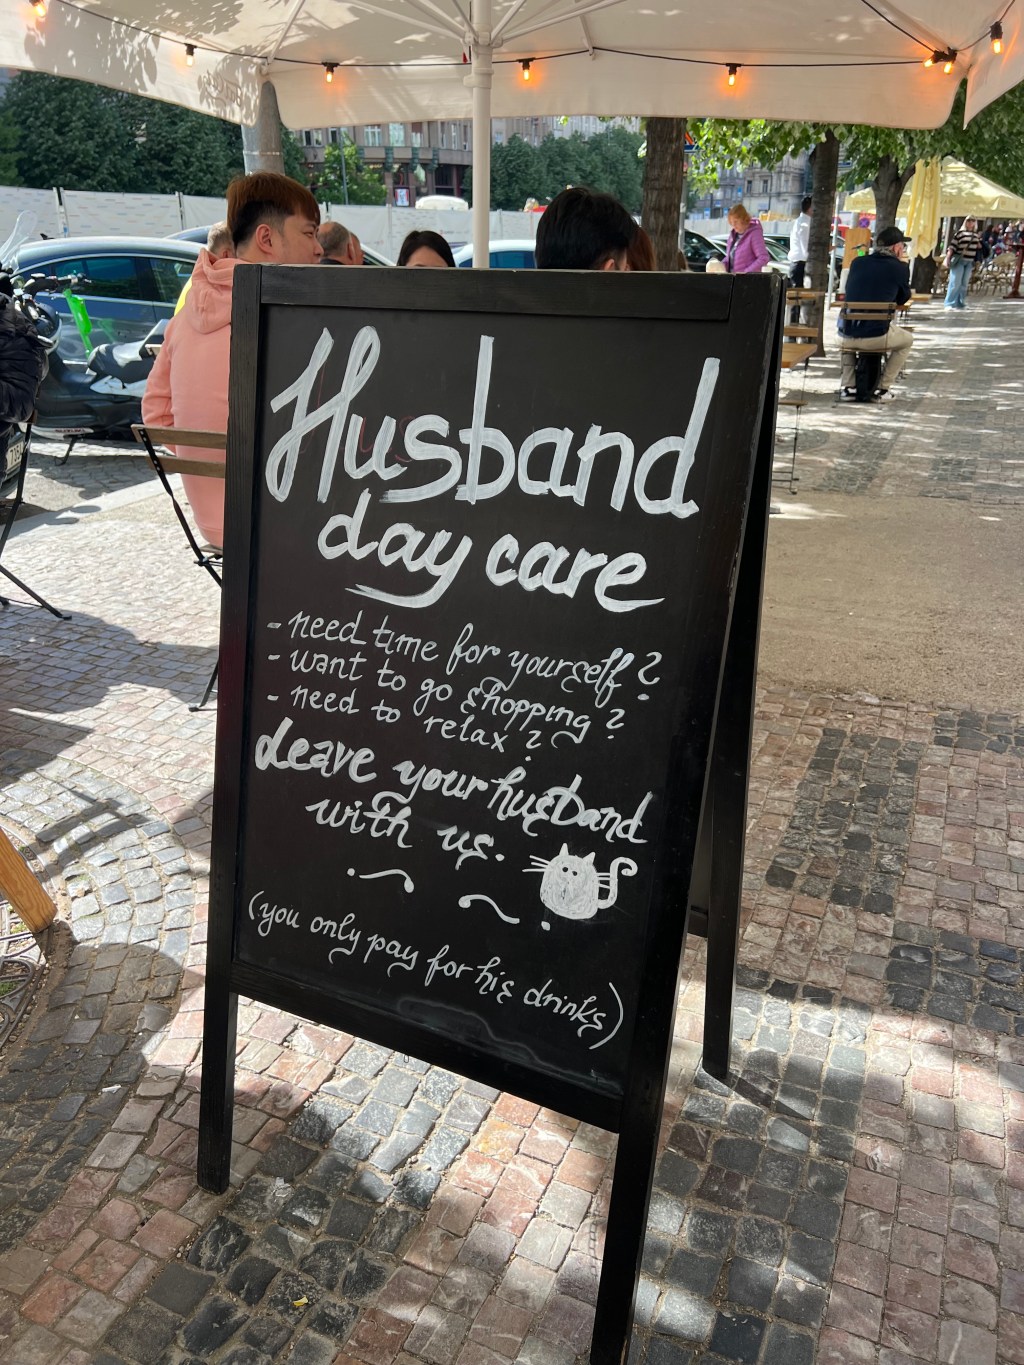 Husband
day care
- need time for yourself?
- want to go shopping?
- need to relax?
Leave your husband
with us.
(you only pay for his drinks)